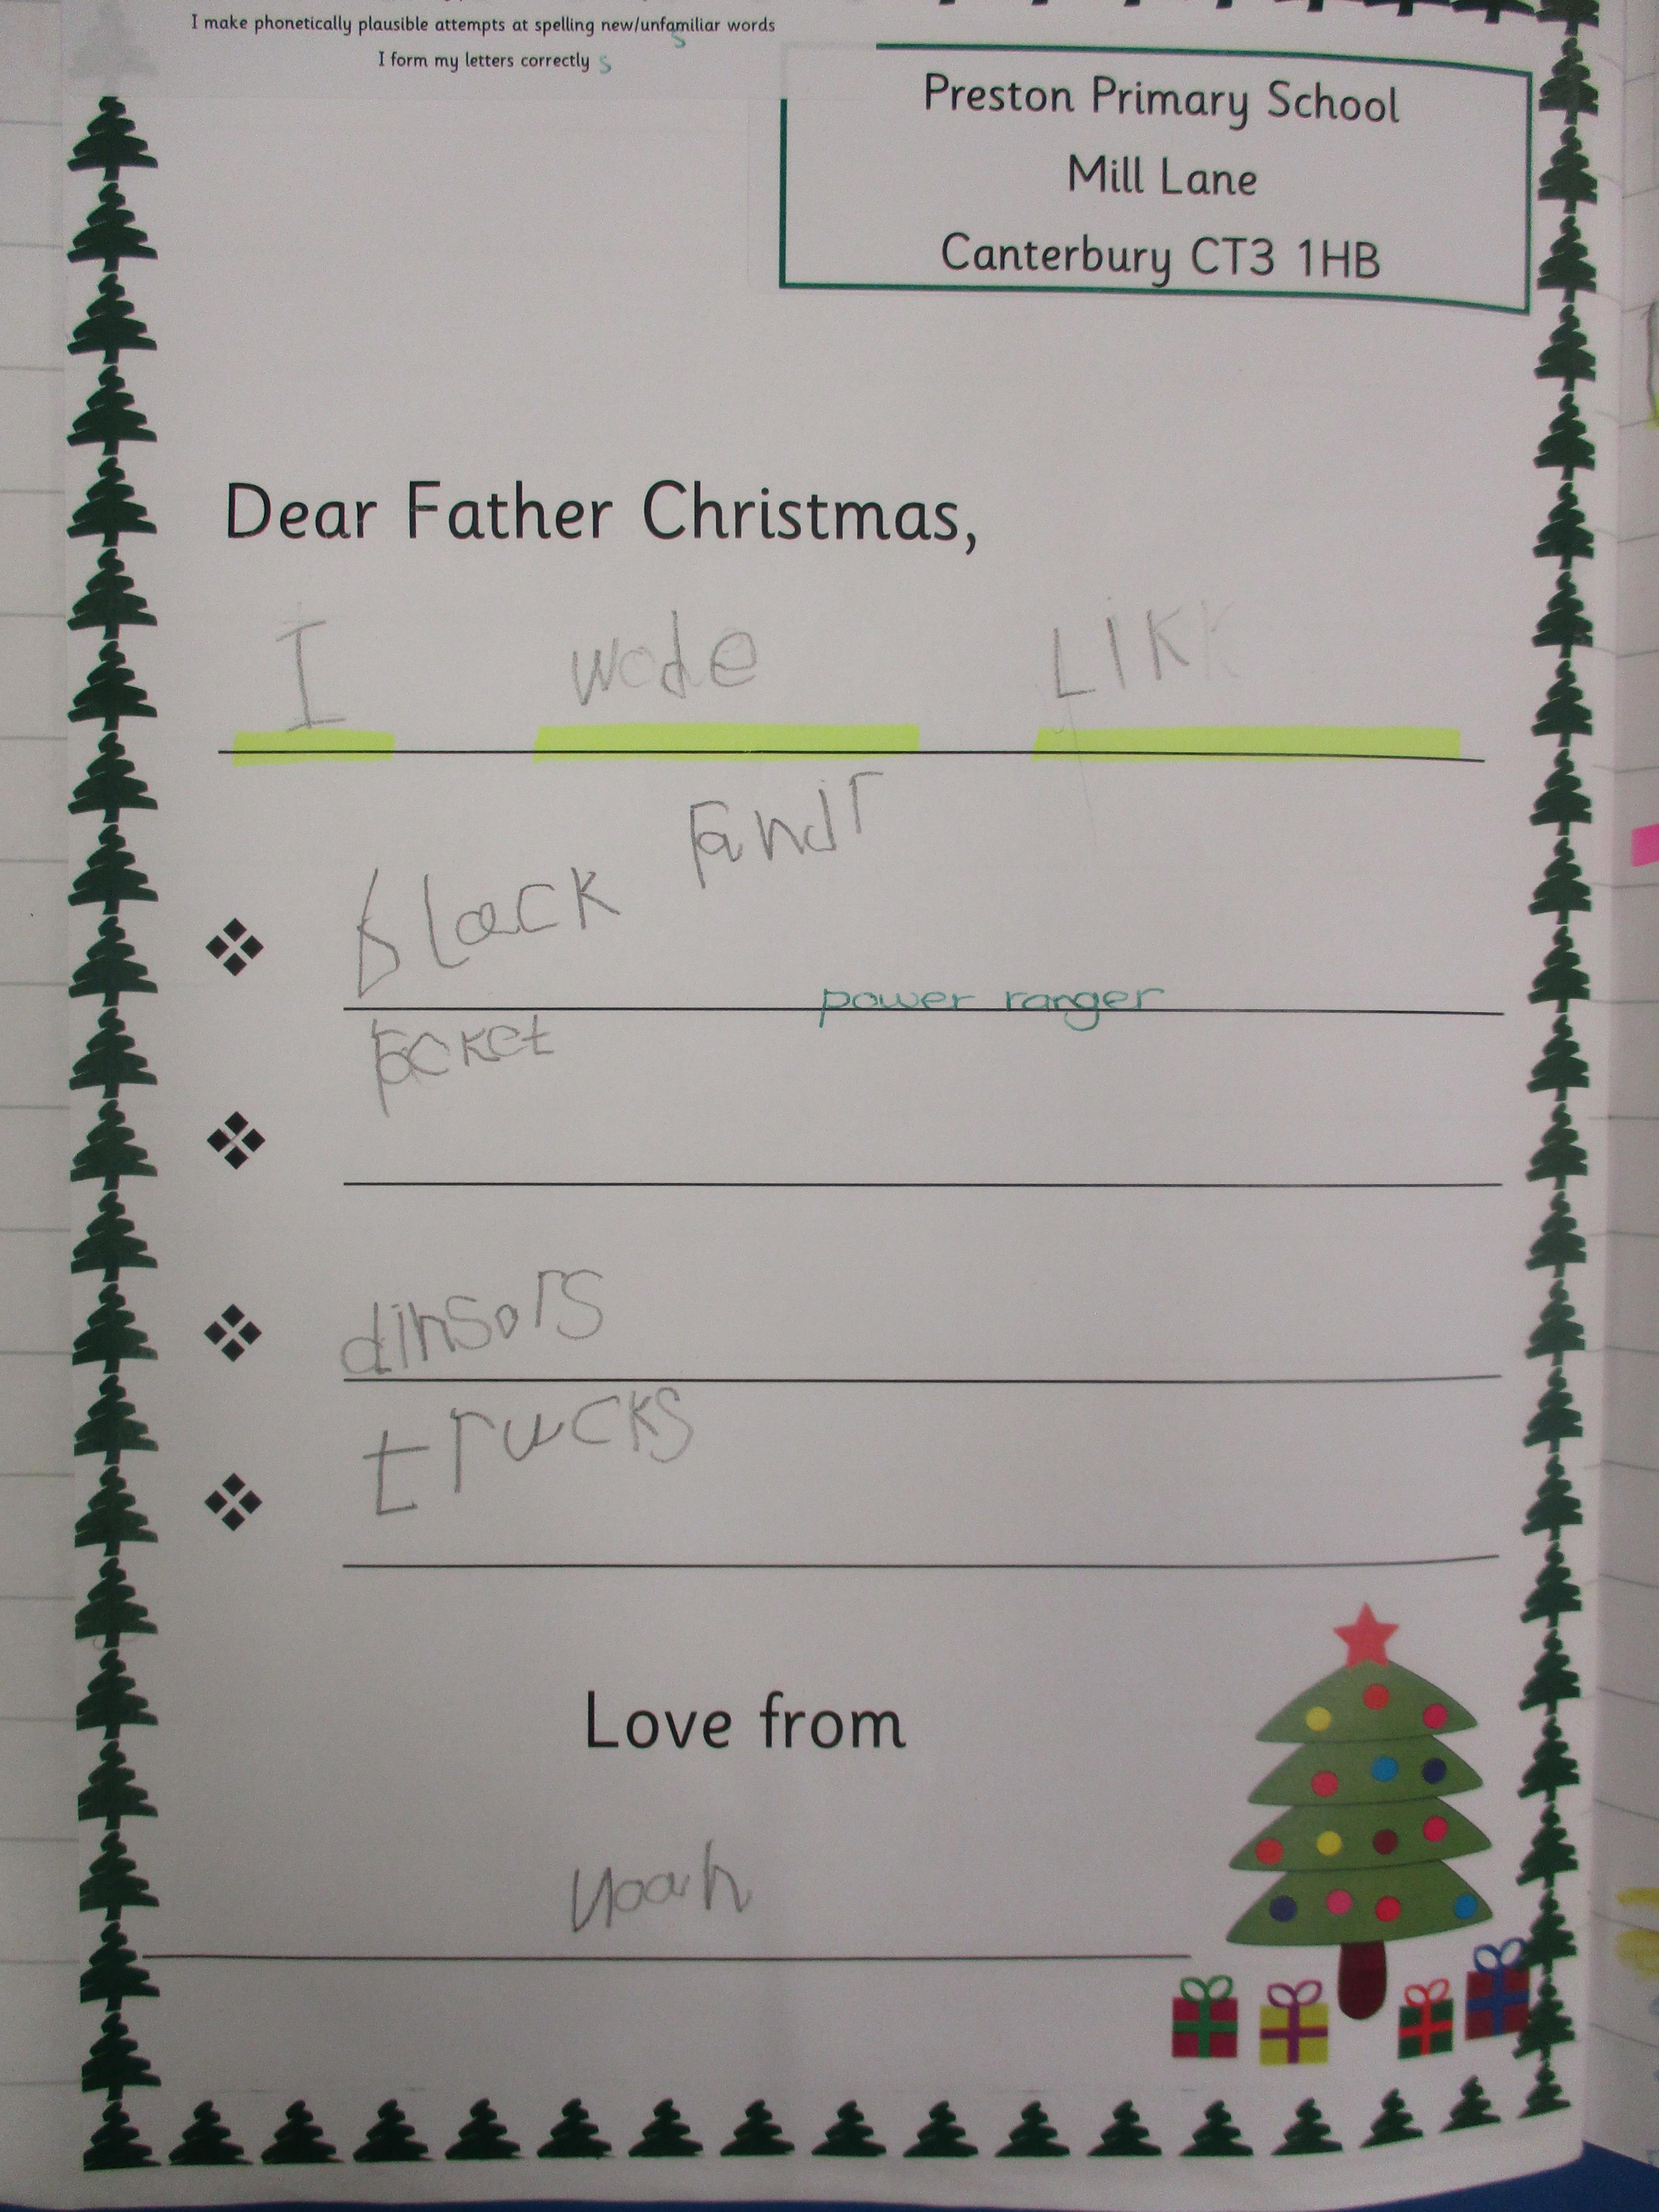 I make phonetically plausible attempts at spelling new/unfamiliar words
s
I form my letters correctly s
Preston Primary School
Mill Lane
Canterbury CT3 1HB
Dear Father Christmas,
I wode LIK
black
power ranger
Pocket
dinsors
trucks
Love from
noah